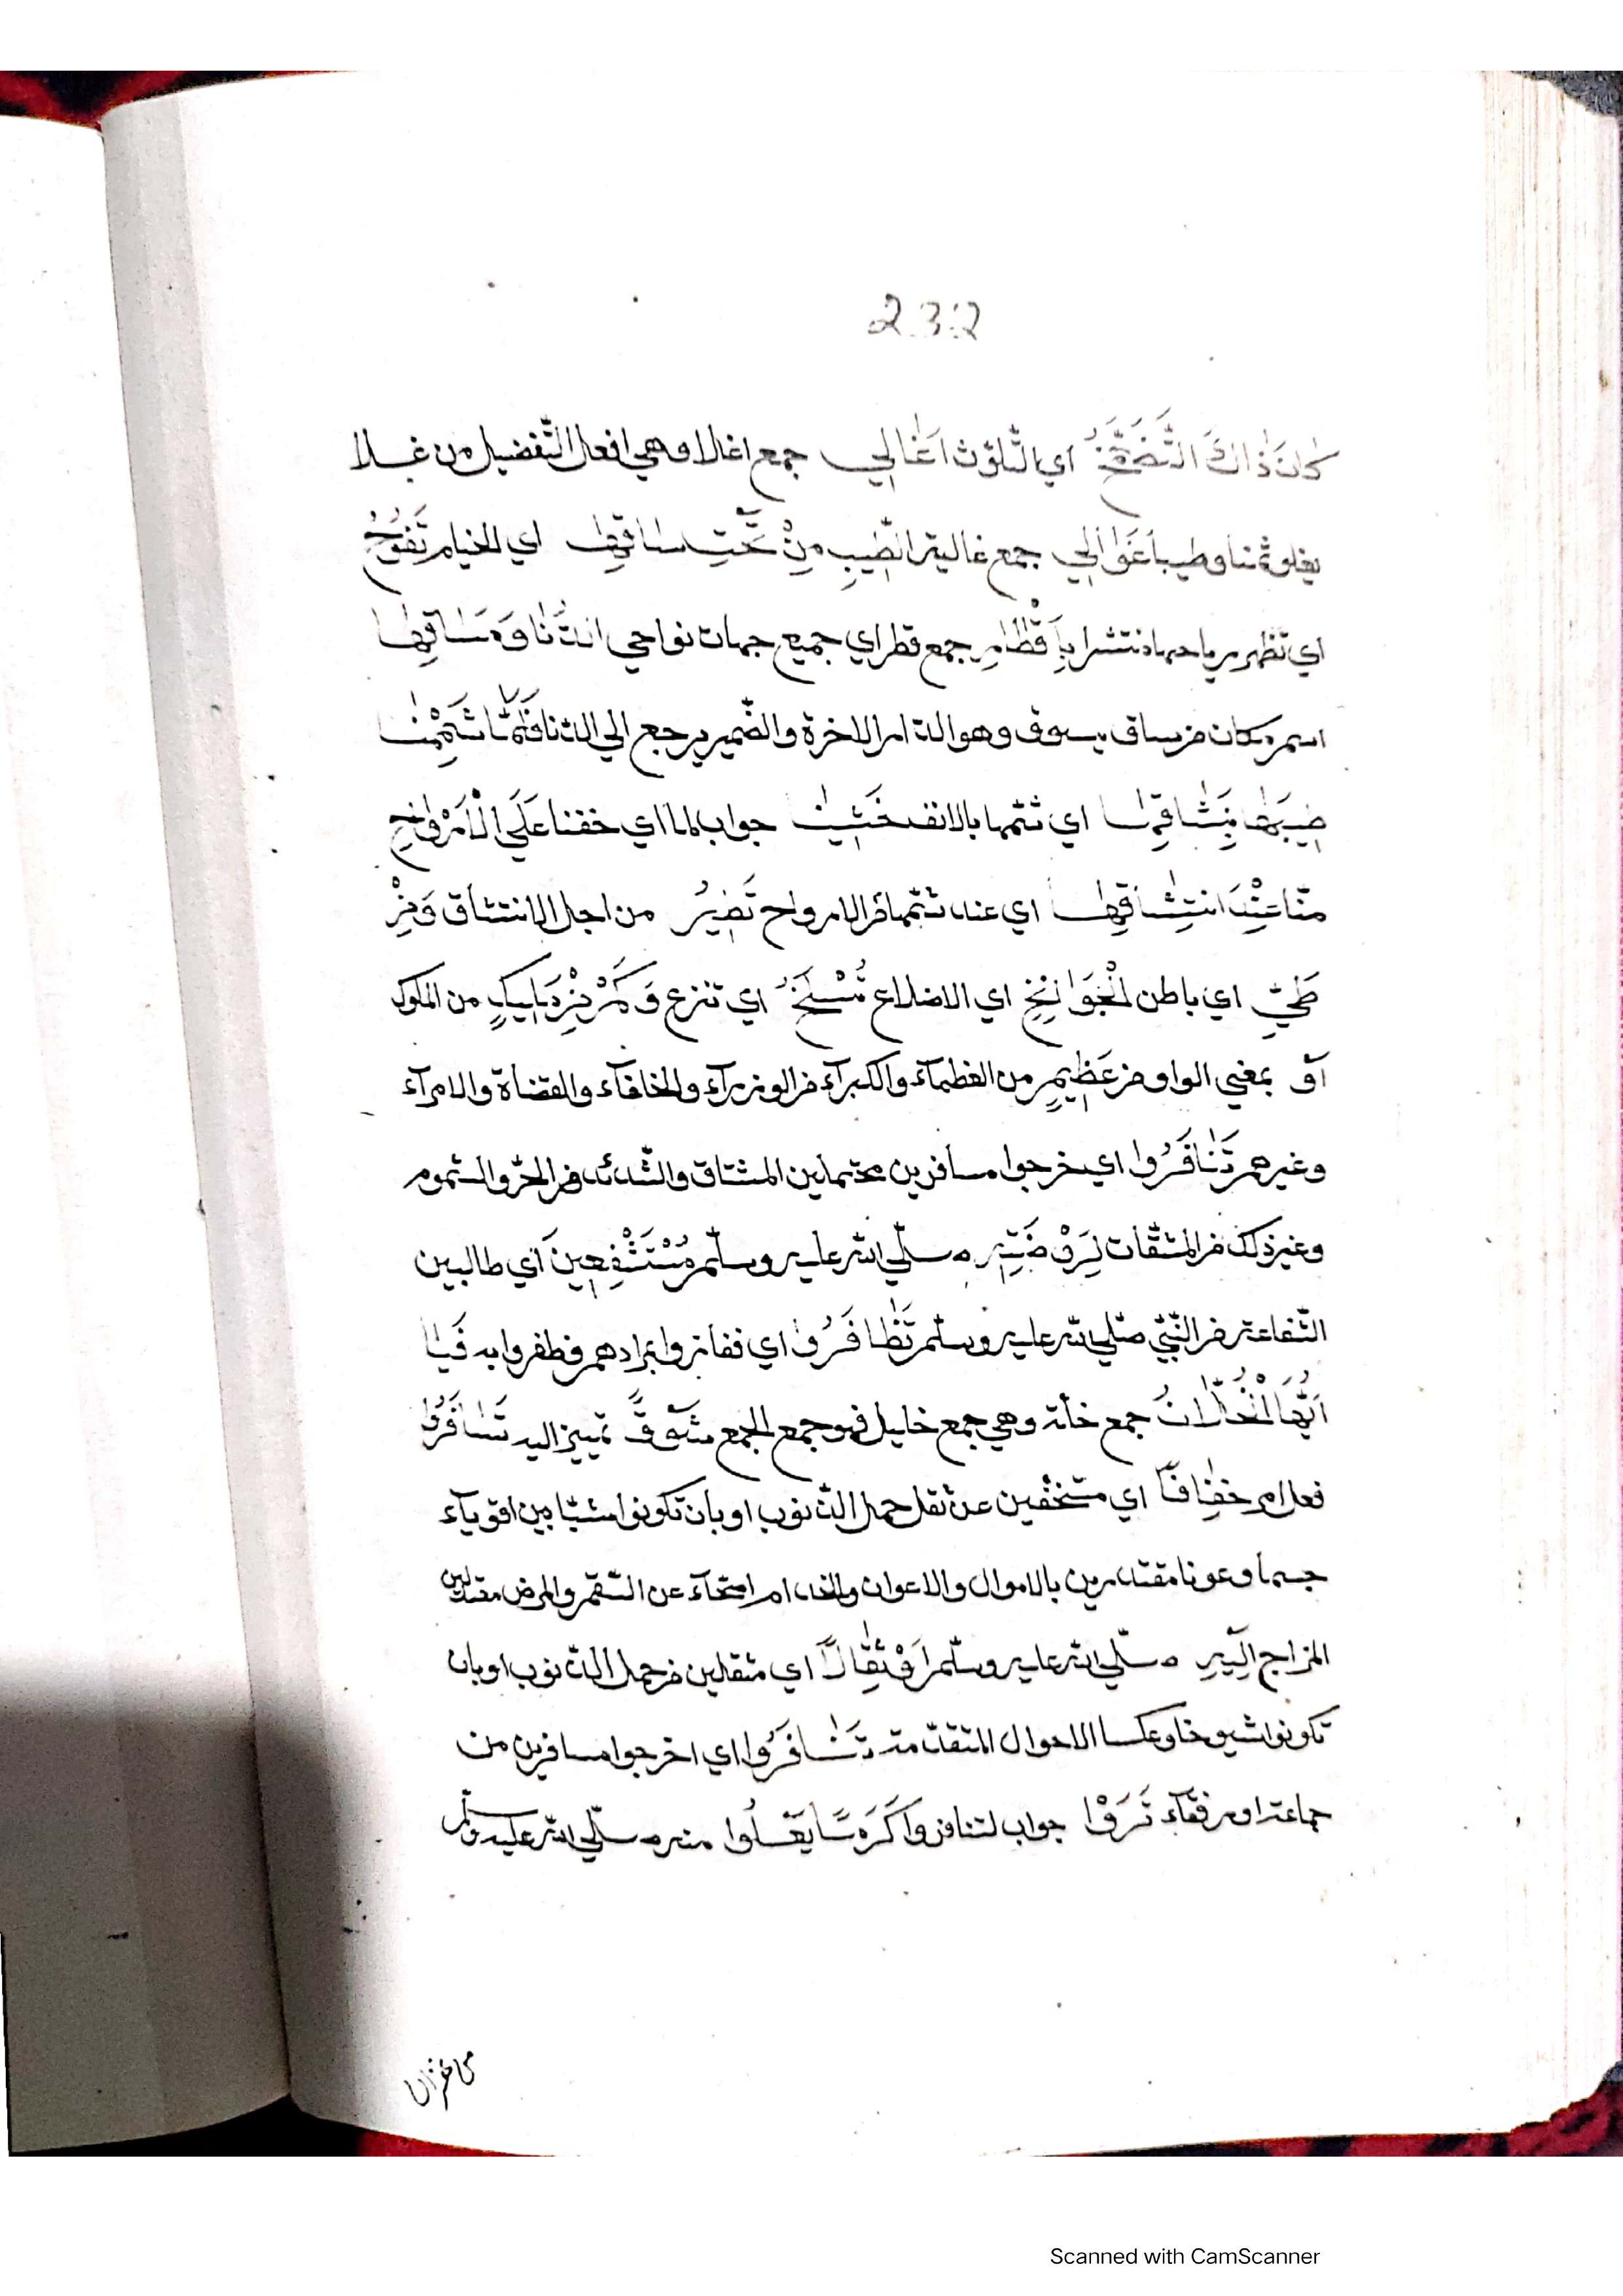 232
كَانَ ذَاكَ التَّضَمُّخُ اي التّلوّث اَغَالِي جمع اغلا وهي افعل التّفضيل من غلا
يغلو ثمنا وطيبا غَوَالِي جمع غالية الطّيب مِنْ تَحْتِ اي الخيام تَفُوحُ
اي تظهر رياحها منتشرا بِاَقْطَارِ جمع قطر اي جميع جهات نواحي الدُّنَا وَمَسَاقِهَا
اسم مكان من ساق يسوق وهو الدار الاخرة والضّمير يرجع الي الدنا فَلَمَّا شَمَمْنَا
طِيبَهَا اي شمّها بالانف خَشِينَا جواب لما اي خفنا عَلَي الْاَرْوَاحِ
منّا عِنْدَ انتِشَاقِهَا اي عند شمّها من الارواح تَصِيرُ من اجل الانتشاق وَمِنْ
طَيِّ اي باطن الْجَوَانِحِ اي الاضلاع تُسْلَخُ اي تنزع وَكَمْ مِنْ مَلِيكٍ من الملوك
اَوْ بمعني الواو من عَظِيمٍ من العظمآء والكبرآء من الوزرآء والخلفآء والقضاة والامرآء
وغيرهم تَنَافَرُوا اي خرجوا مسافرين محتملين المشاق والشّدائد من الحرّ والسّموم
وغير ذلك من المشقّات لِرَوْضَتِهِ صلّي الله عليه وسلّم مُسْتَشْفِعِينَ اي طالبين
الشّفاعة من النّبيّ صلّي الله عليه وسلّم تَظَافَرُوا اي ففازوا بمرادهم فظفروا به فَيَا
اَيُّهَا الْخُلَّانُ جمع خلّة وهي جمع خليل فهو جمع الجمع شَوْقًا تمييز اليه تَسَافَرُوا
فعل امر خِفَافًا اي متخفّين عن ثقل حمل الذّنوب او بان تكونوا مشبّا بين اقويآء
جسما وعونا مقتدرين بالاموال والاعوان والخدام اصحّآء عن السّقم والمرض معتدلين
المزاج اِلَيهِ صلّي الله عليه وسلّم اَوْ ثِقَالًا اي مثقلين من حمل الذّنوب او بان
تكونوا شيوخا وعكس الاحوال المتقدّمة تَنَافَرُوا اي اخرجوا مسافرين من
جماعة او رفقآء تَرَوْا جواب لتنافروا يَعْلُوا منه صلّي الله عليه وسلّم